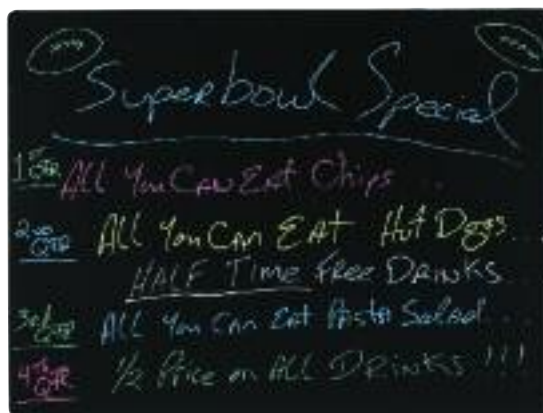 Superbowl Special
1st QTR ALL You CAN EAt Chips . . .
2nd QTR ALL You CAN EAt Hot Dogs . . .
HALF Time FREE DRINKS . . .
3rd QTR ALL You CAN Eat PAStA SALAd . . .
4th QTR 1/2 Price on ALL DRINKS !!!